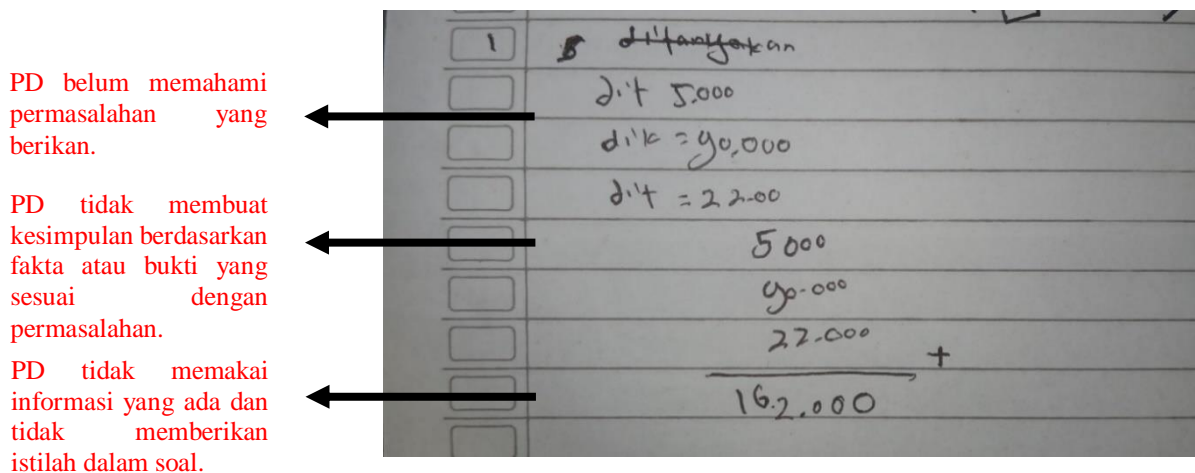 PD belum memahami
permasalahan yang
berikan.
PD tidak membuat
kesimpulan berdasarkan
fakta atau bukti yang
sesuai dengan
permasalahan.
PD tidak memakai
informasi yang ada dan
tidak memberikan
istilah dalam soal.
1 ditanyakan
dit 5.000
dik = 90.000
dit = 22.00
5000
90.000
22.000
+
162.000